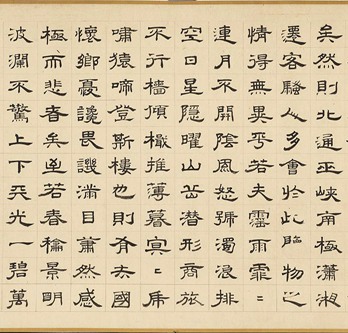 矣然則北通巫峽南極瀟湘
遷客騷人多會於此覽物之
情得無異乎若夫霪雨霏〻
連月不開陰風怒號濁浪排
空日星隱曜山岳潛形商旅
不行檣傾檝摧薄暮冥〻虎
嘯猿啼登斯樓也則有去國
懷鄉憂讒畏譏滿目蕭然感
極而悲者矣至若春龢景明
波瀾不驚上下天光一碧萬